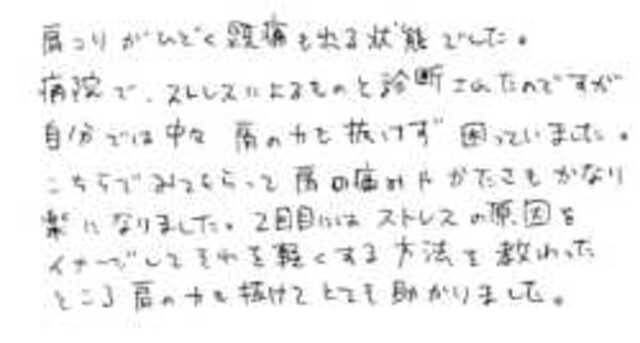 肩コリがひどく頭痛も出る状態でした。
病院で、ストレスによるものと診断されたのですが
自分では中々 肩の力を抜けず 困っていました。
こちらでみてもらって 肩の痛みや かたさも かなり
楽になりました。2回目には ストレスの原因を
イメージして それを軽くする 方法を 教わった
ところ 肩の力も 抜けて とても 助かりました。